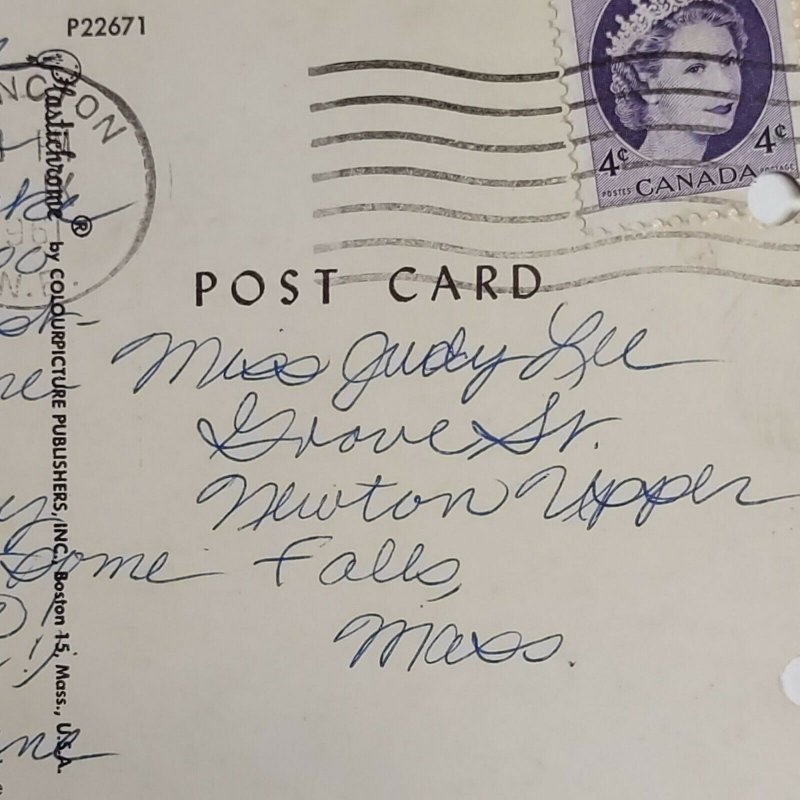 P22671
Plastichrome ® by COLOURPICTURE PUBLISHERS, INC., Boston 15, Mass., U.S.A.
4¢ 4¢
POSTES CANADA POSTAGE
POST CARD
Miss Judy Lee
Grove St.
Newton Upper
Falls,
Mass.
some